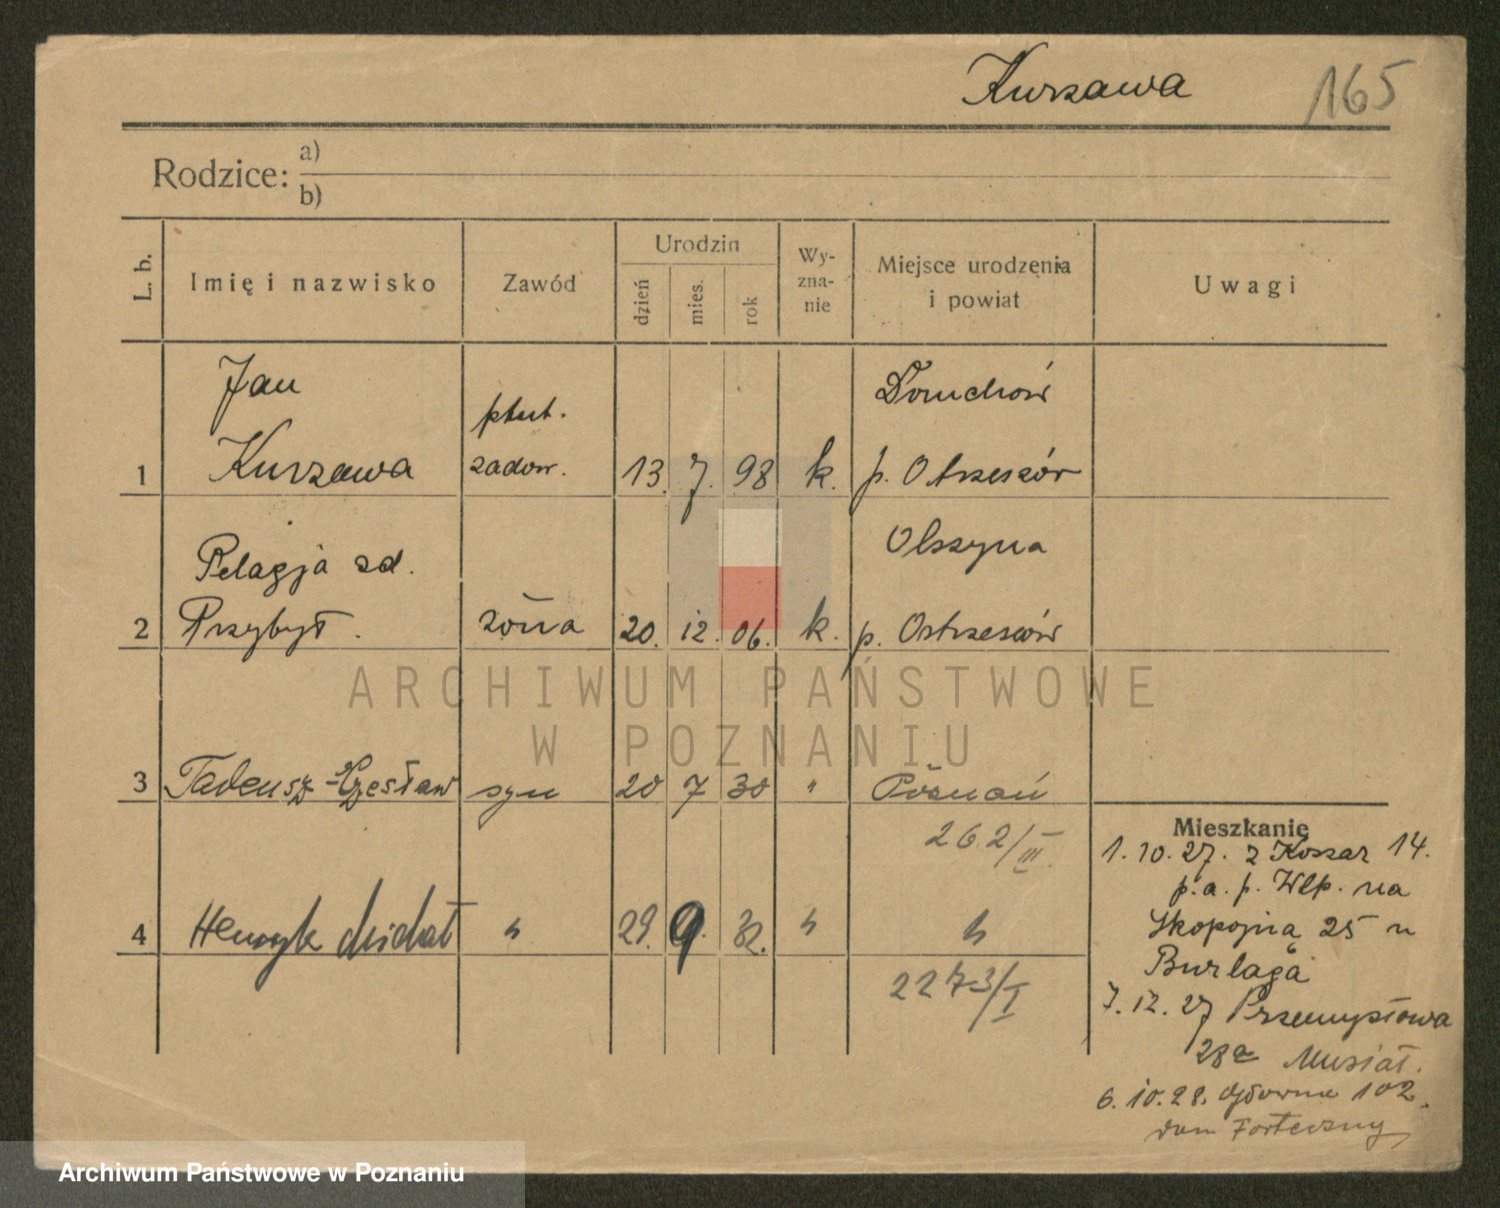 Kurzawa 165
Rodzice: a)
b)
L. b. Imię i nazwisko Zawód Urodzin dzień mies. rok Wy-zna-nie Miejsce urodzenia i powiat Uwagi
Jan plut. Domchów
1 Kurzawa zadow. 13. 7. 98 k. p. Otrzeszów
Pelagja zd. Olszyna
2 Przybył. żona 20. 12. 06. k. p. Ostrzeszów
3 Tadeusz-Czesław syn 20 7 30 " Poznań
262/III
4 Henryk Michał " 29. 9. 32. " "
2273/I
Mieszkanie
1.10.27. z Koszar 14.
p. a. p. Wlp. na
Skopojna 25 u
Burlaga
7.12.27 Przemysłowa
28a Musiał.
6.10.28. Główna 102.
dom Forteczny
ARCHIWUM PAŃSTWOWE
W POZNANIU
Archiwum Państwowe w Poznaniu